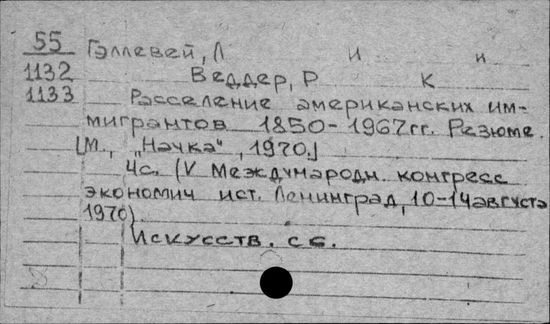 55 Гэллевей, Л и и
1132 Веддер, Р К
1133 Расселение американских им-
мигрантов 1850-1967гг. Резюме.
[М., "Наука", 1970]
4с. (V Международн. конгресс
экономич ист. Ленинград, 10-14 августа
1970).
Искусств. сб.